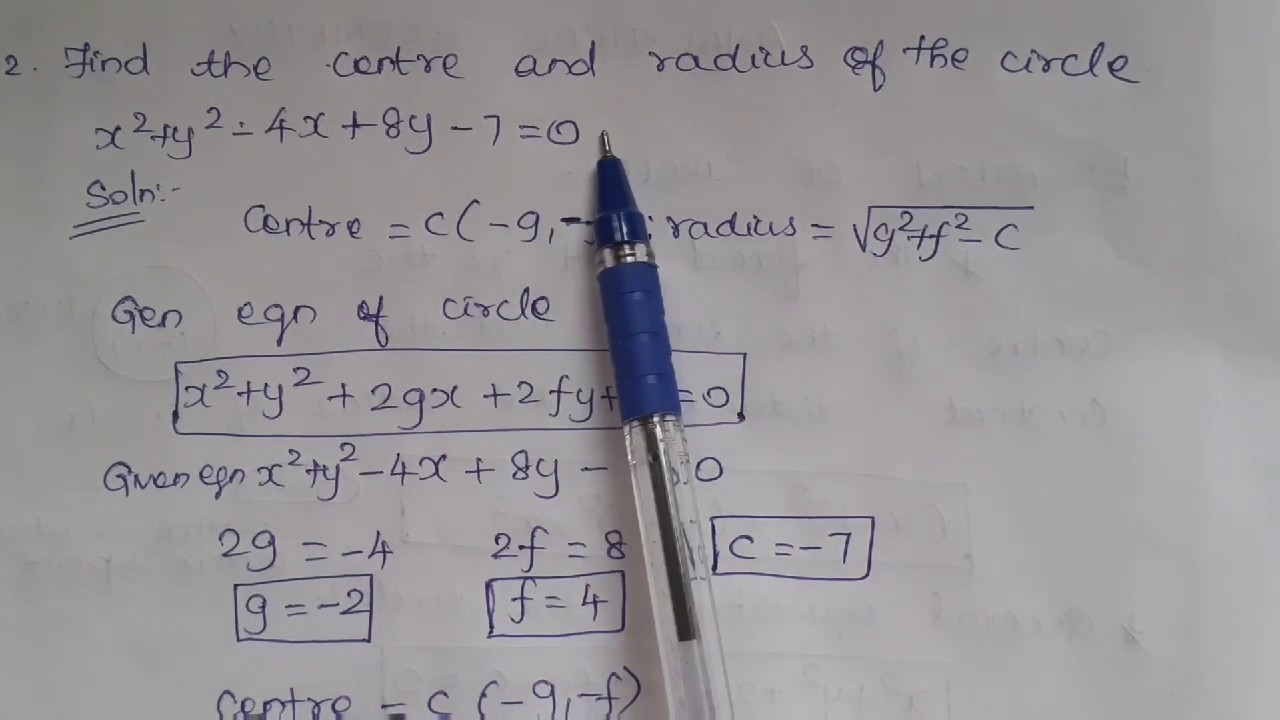 2. Find the centre and radius of the circle
x²+y²-4x+8y-7=0
Soln:-
Centre = C(-g,- ; radius = √g²+f²-c
Gen eqn of circle
x²+y²+2gx+2fy+ =0
Given eqn x²+y²-4x+8y- 0
2g = -4 2f = 8 c = -7
g = -2 f = 4
centre = c (-g,-f)